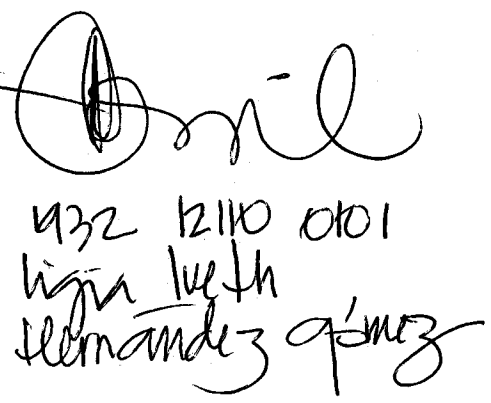 1932 12110 0101
Ligia Iveth
Hernández Gómez